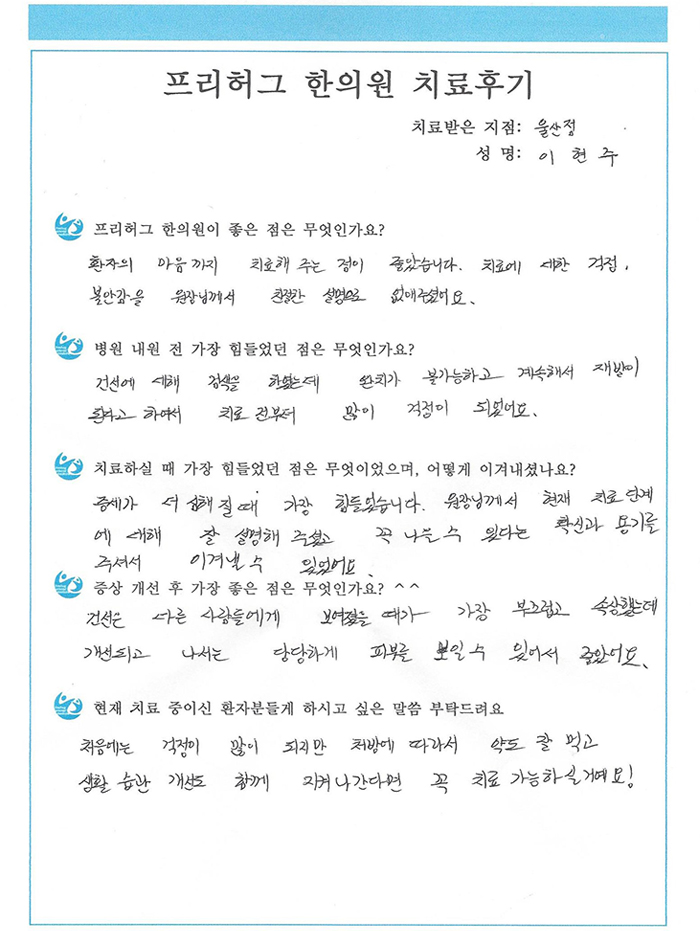 프리허그 한의원 치료후기
치료받은 지점: 울산점
성 명: 이현주
프리허그 한의원이 좋은 점은 무엇인가요?
환자의 마음까지 치료해 주는 점이 좋았습니다. 치료에 대한 걱정,
불안감을 원장님께서 친절한 설명으로 없애주셨어요.
병원 내원 전 가장 힘들었던 점은 무엇인가요?
건선에 대해 검색을 하였는데 완치가 불가능하고 계속해서 재발이
된다고 하여서 치료 전부터 많이 걱정이 되었어요.
치료하실 때 가장 힘들었던 점은 무엇이었으며, 어떻게 이겨내셨나요?
증세가 더 심해질 때 가장 힘들었습니다. 원장님께서 현재 치료 단계
에 대해 잘 설명해 주셨고 꼭 나을 수 있다는 확신과 용기를
주셔서 이겨낼 수 있었어요.
증상 개선 후 가장 좋은 점은 무엇인가요? ^^
건선은 다른 사람들에게 보여졌을 때가 가장 부끄럽고 속상했는데
개선되고 나서는 당당하게 피부를 보일 수 있어서 좋았어요.
현재 치료 중이신 환자분들게 하시고 싶은 말씀 부탁드려요
처음에는 걱정이 많이 되지만 처방에 따라서 약도 잘 먹고
생활 습관 개선도 함께 지켜나간다면 꼭 치료 가능하실거예요!